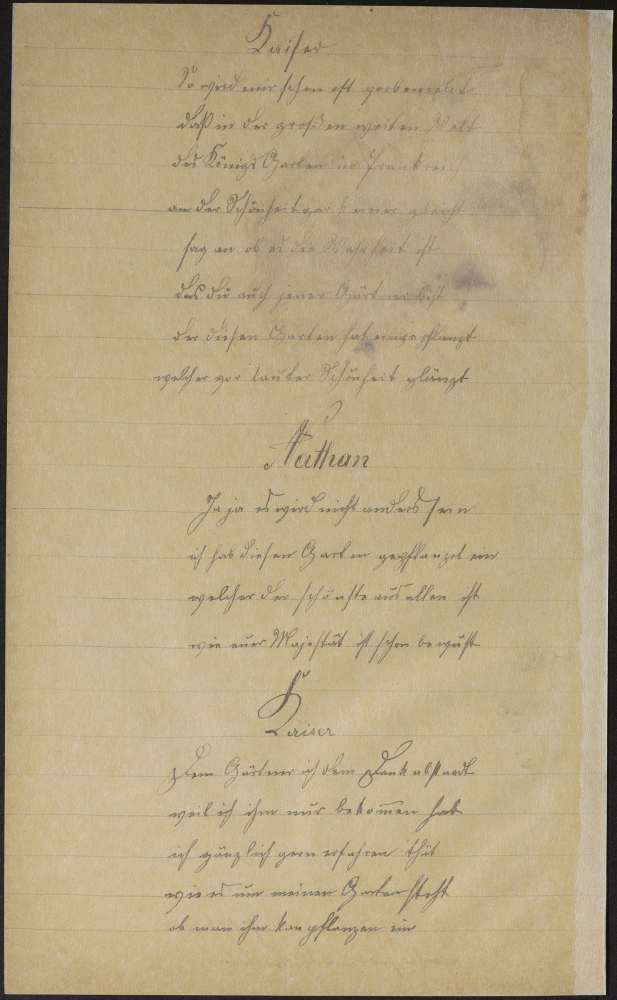 Kaiser
So wird mir schon oft
daß in der großen weiten Welt
des Königs Garten in Frankreich
an der Schönheit gar keiner gleicht
sag an ob es die Wahrheit ist
das du auch jener Gärtner bist
der diesen Garten hat eingepflanzt
welcher vor lauter Schönheit glänzt
Nathan
Ja ja es wird nicht anders sein
ich hab diesen Garten gepflanzet ein
welcher der schönste aus allen ist
wie euer Majestät ist schon bewust
Kaiser
Dem Gärtner ich dem Dank abstadt
weil ich ihm nur bekom̄en hab
ich gänzlich gern erfahren thät
wie es um meinen Garten steht
ob man ihm kan pflanzen ein